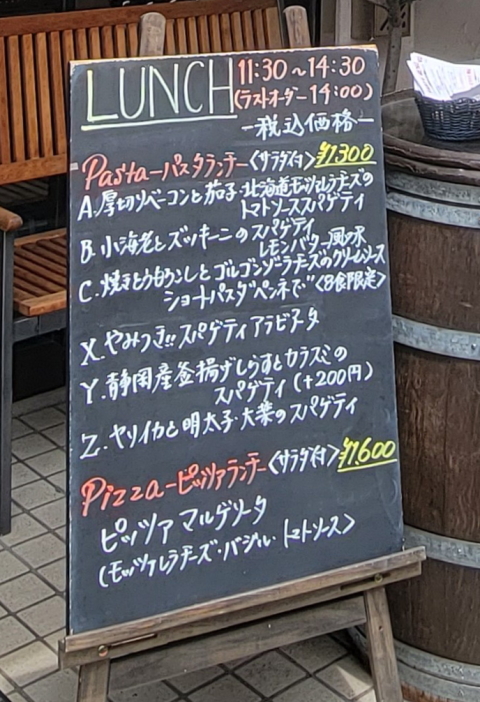 LUNCH 11:30~14:30
(ラストオーダー14:00)
ー税込価格ー
Pastaーパスタランチー〈サラダ付〉¥1,300
A.厚切りベーコンと茄子・北海道モッツァレラチーズの
トマトソーススパゲティ
B.小海老とズッキーニのスパゲティ
レモンバター風味
C.焼きとうもろこしとゴルゴンゾーラチーズのクリームソース
ショートパスタ"ペンネで"〈8食限定〉
X.やみつき!!スパゲティアラビアータ
Y.静岡産釜揚げしらすとカラスミの
スパゲティ(+200円)
Z.ヤリイカと明太子・大葉のスパゲティ
Pizzaーピッツァランチー〈サラダ付〉¥1,600
ピッツァ マルゲリータ
(モッツァレラチーズ・バジル・トマトソース〉